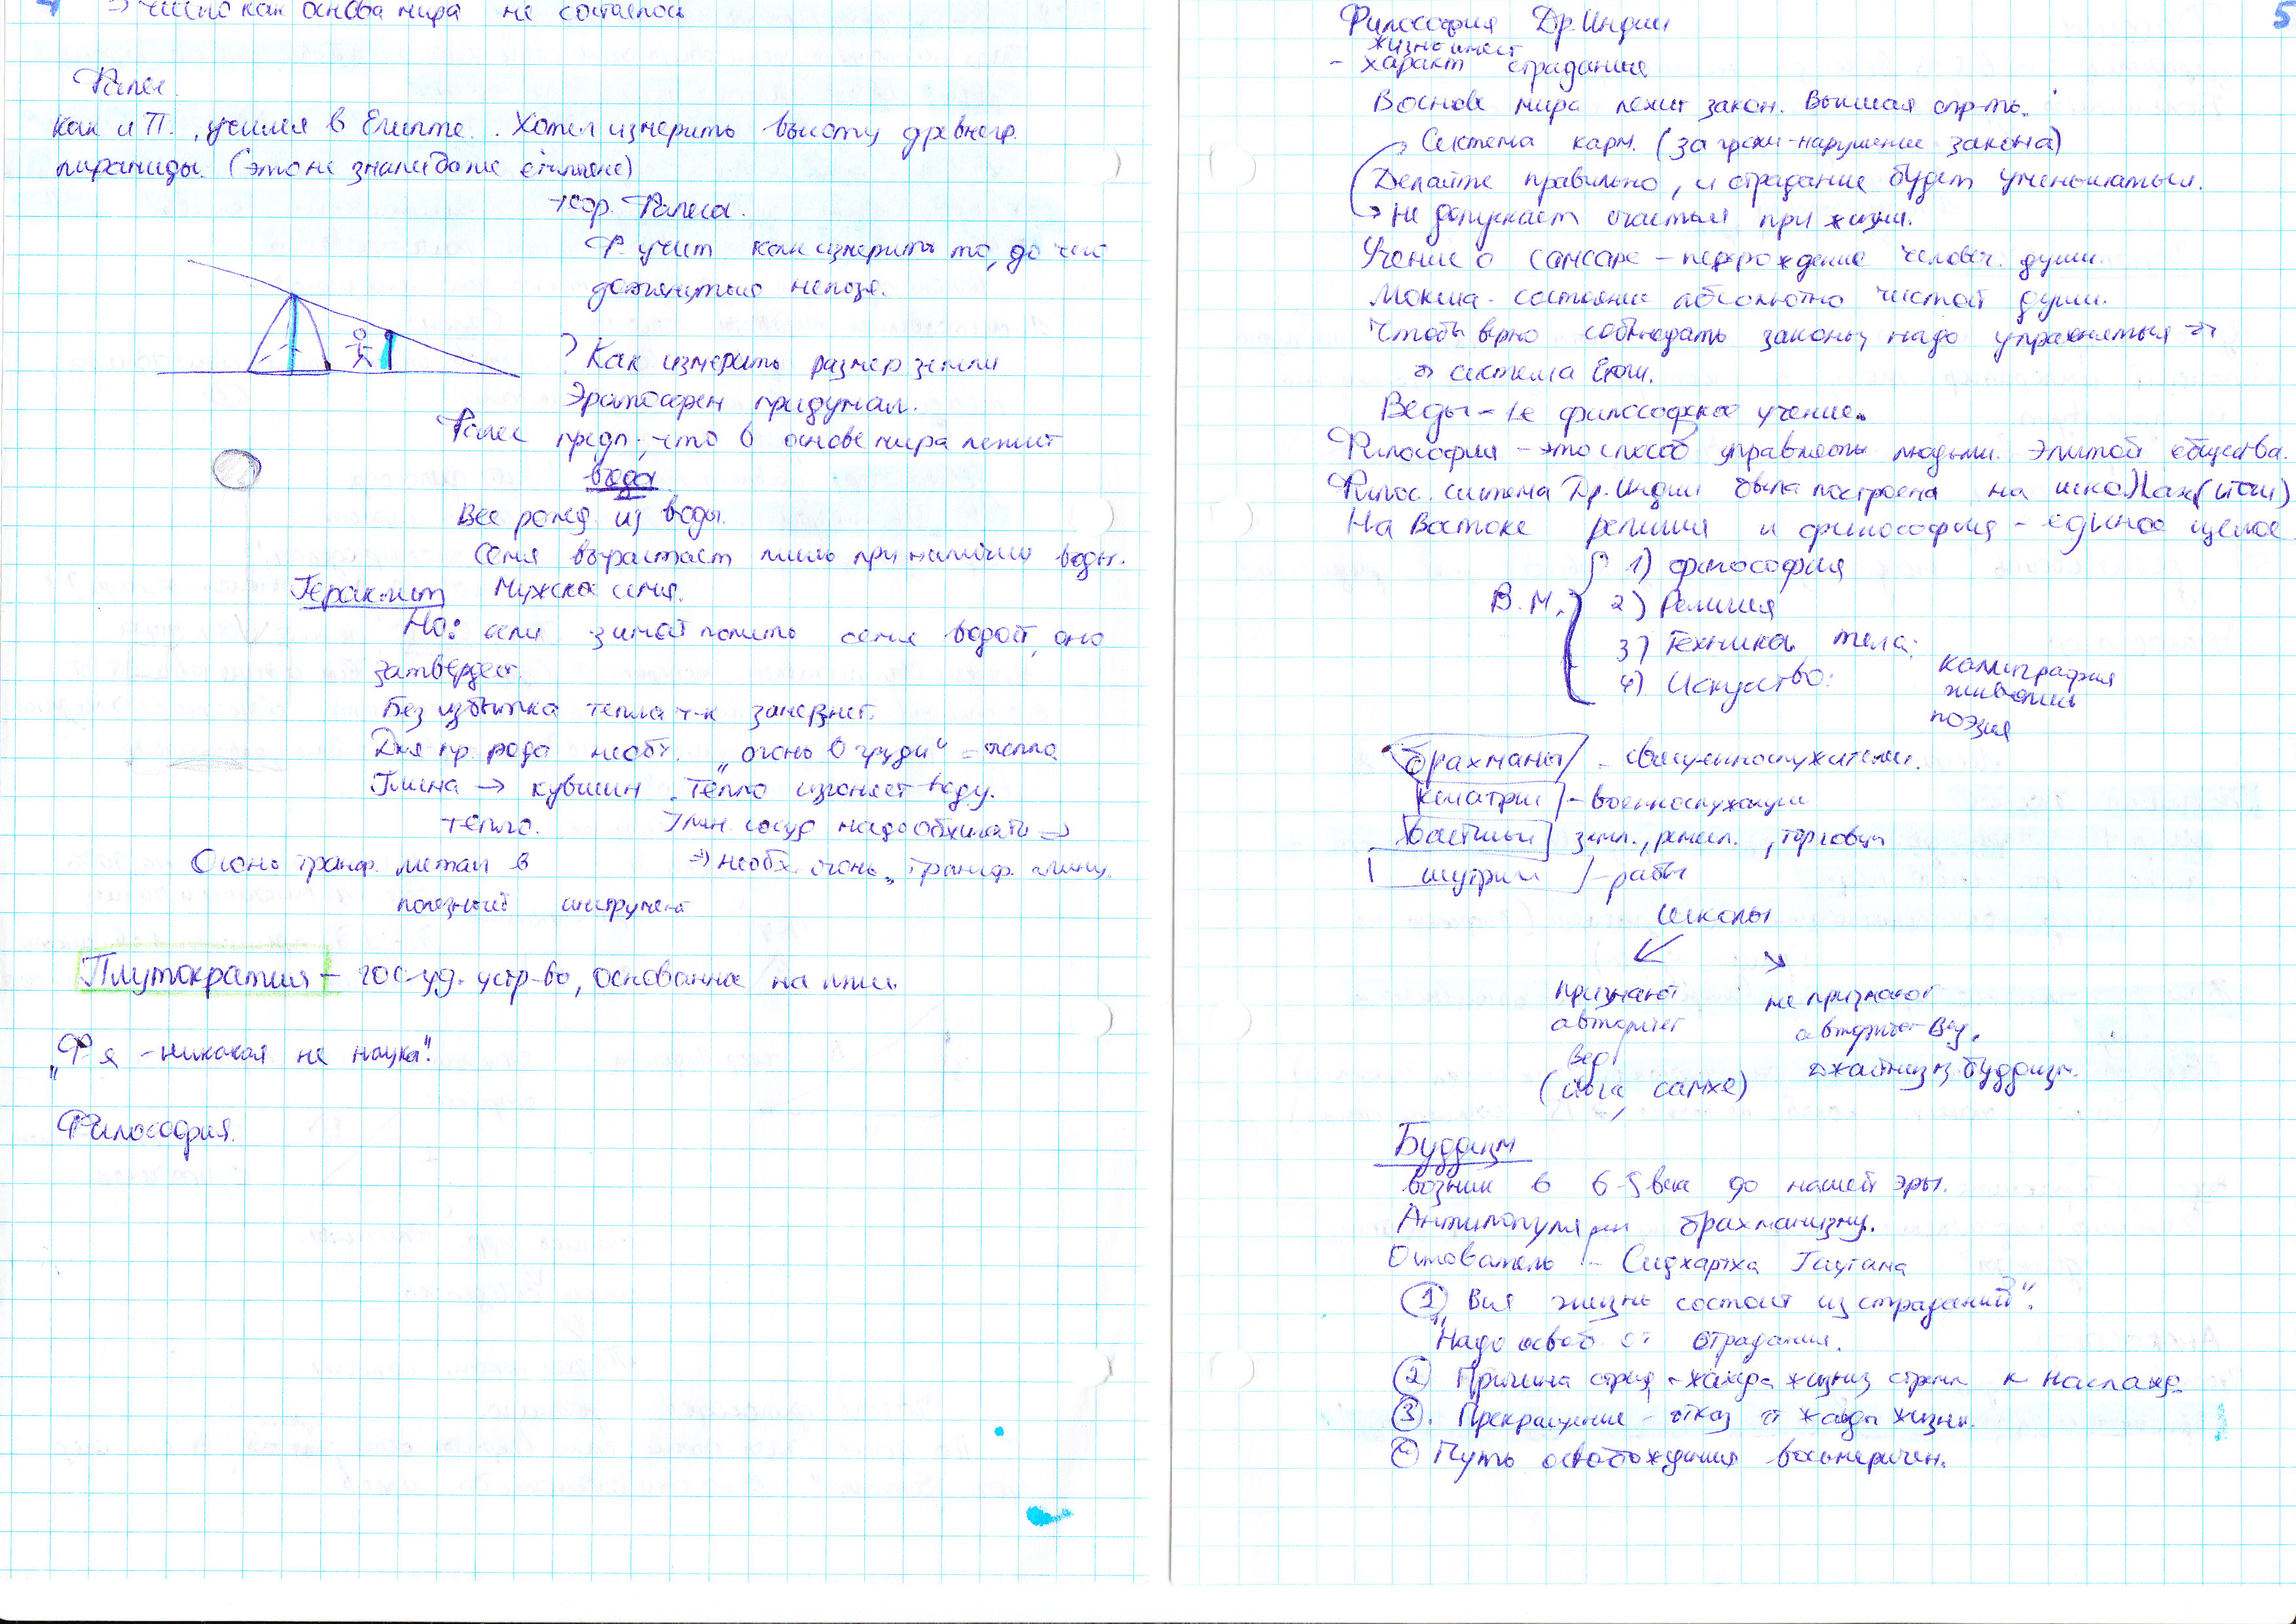 4
⇒ число как основа мира не состоялось
Фалес.
Как и П., учился в Египте. Хотел измерить высоту древнегр.
пирамиды. (этого не знали даже египтяне)
теор. Фалеса.
Ф. учит как измерить то, до чего
дотянуться нельзя.
? Как измерить размер земли
Эратосфен придумал.
Фалес предп., что в основе мира лежит
вода
Все рожд. из воды.
Семя вырастает лишь при наличии воды.
Гераклит Мужско семя.
Но: если зимой полить семя водой, оно
затвердеет.
Без избытка тепла ч-к замерзнет.
Для пр. рода необх. „огонь в груди" = тепло
Глина → кувшин. Тепло изгоняет воду.
тепло. Глин. сосуд надо обжигать ⇒
Огонь трансф. метал в ⇒ необх. огонь, трансф. глину.
полезный инструмент
Плутократия - госуд. устр-во, основанное на лжи.
„Ф-я - никакая не наука".
Философия.
5
Философия Др. Индии
жизнь имеет
- характ страдания
В основе мира лежит закон. Высшая спр-ть.
Система карм. (за грехи - нарушение закона)
Делайте правильно, и страдание будет уменьшаться.
не допускает счастья при жизни.
Учение о сансаре - перерождение человеч. души.
Мокша - состояние абсолютно чистой души.
Чтобы верно соблюдать законы, надо упражняться ⇒
⇒ система Йоги.
Веды - 1е философское учение.
Философия - это способ управлять людьми. Элитой общества.
Филос. система Др. Индии была построена на школах (йоги)
На Востоке религия и философия - единое целое.
1) философия
В.М. 2) Религия
3) Техника тела:
4) Искуство: каллиграфия
живопись
поэзия
брахманы - священнослужители.
кшатрии - военнослужащие
вайшьи земл., ремесл., торговцы
шутрии - рабы
школы
признают не признают
авторитет авторитет Вед.
Вед джайнизм, буддизм.
(йога, санкхе)
Буддизм
возник в 6-5 веке до нашей эры.
Антипопулярен брахманизму.
Основатель - Сидхартха Гаутама
① „Вся жизнь состоит из страданий".
"Надо освоб от страдания.
② Причина страд - жажда жизни, стремл к наслажд
③. Прекращение - отказ от жажды жизни.
④ Путь освобождения восьмеричен.